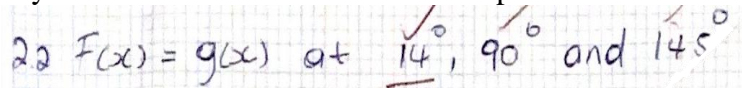 22 F(x) = g(x) at 14°, 90° and 145°